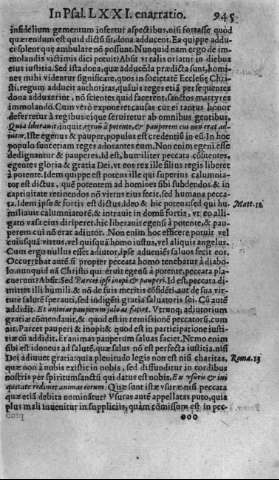 In Psal. LXXI. enarratio. 945
infidelium gementum infertur aspectibus, nisi forsasse quod
quærendum est quid dictū sit, dona adducent. Ea quippe addu
ci solent quæ ambulare nō possunt. Nunquid nam ergo de im-
molandis victimis dici potuit? Absit vt talis oriatur in diebus
eius iustitia. Sed ista dona, quæ adducēda prædicta sunt, homi
nes mihi videntur significare, quos in societatē Ecclesiæ Chri
sti, regum adducit authoritas, quāuis & reges etiā persequentes
dona adduxerint, nō scientes quid facerent, sanctos martyres
immolando. Cum verò exponeret causas cur ei tantus honor
deferretur à regibus eique seruiretur ab omnibus gentibus,
Quia liberauit, inquit, egenū à potente, & pauperē cui non erat ad
iutor. Iste egenus & pauper, populus est credentiū in eū. In hoc
populo sunt etiam reges adorantes eum. Non enim egeni esse
dedignantur & pauperes. Id est, humiliter peccata cōfitentes,
egentes gloria & gratia Dei, vt eos rex ille filius regis liberet
à potente. Idem quippe est potens ille qui superius calumnia-
tor est dictus, quem potentem ad homines sibi subdendos & in
captiuitate retinendos nō virtus eius fecit, sed humana pecca-
ta. Idem ipse & fortis est dictus. Ideo & hic potens, sed qui hu-
miliauit calumniatorē, & intrauit in domū fortis, vt eo alli-
gato vasa eius diriperet, hic liberauit egenū à potente, & pau-
perem cui nō erat adiutor. Non enim hoc efficere potuit vel
cuiusquā virtus, vel quisquā homo iustus, vel aliquis angelus.
Cum ergo nullus esset adiutor, ipse adueniēs saluos fecit eos.
Occurrebat autē si propter peccata homo tenebatur à diabo-
lo, nunquid nā Christo qui eruit egenū à potente, peccata pla-
cuerunt? Absit. Sed Parcet ipse inopi & pauperi. Id est, peccata di-
mittet illi humili, & nō de suis meritis cōfidēti aut de sua vir-
tute salutē sperāti, sed indigēti gratia saluatoris sui. Cū autē
addidit. Et animas pauperum saluas faciet. Vtrunq; adiutorium
gratiæ cōmendauit, & quod est in remissionē peccatorū, cum
ait, Parcet pauperi & inopi: & quod est in participatione iusti-
tiæ cū addidit, Et animas pauperum saluas faciet. Nemo enim
sibi est idoneus ad salutē, quæ salus nō est perfecta iustitia, nisi
Dei adiuuet gratia: quia plenitudo legis non est nisi charitas,
quæ non à nobis existit in nobis, sed diffunditur in cordibus
nostris per spiritum sanctū qui datus est nobis. Ex vsuris & ini
quitate redimet animas eorum. Quæ sunt istæ vsuræ nisi peccata
quæ etiā debita nominātur? Vsuras autē appellatas puto, quia
plus mali inuenitur in suppliciis, quàm cōmissum est in pec-
Matt. 12.
Roma. 13